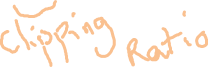 Clipping Ratio